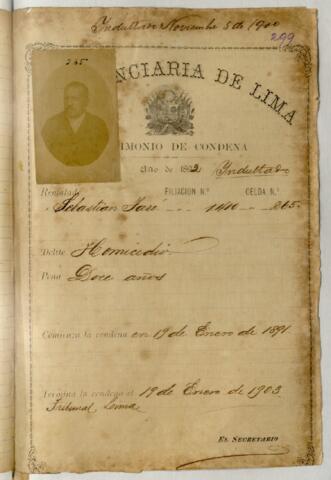 Indultado Noviembre 5 de 1900
299
265
NCIARIA DE LIMA
IMONIO DE CONDENA
Año de 1892 Indultado
Rematado FILIACION N.º CELDA N.º
Sebastián 265.
Delito Homicidio
Pena Doce años
Comienza la condena en 19 de Enero de 1891.
Termina la condena el 19 de Enero de 1903
Tribunal, Lima
EL SECRETARIO